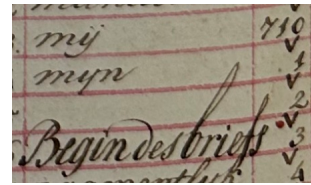 mij 710
myn 1
2
Begin des briefs 3
4